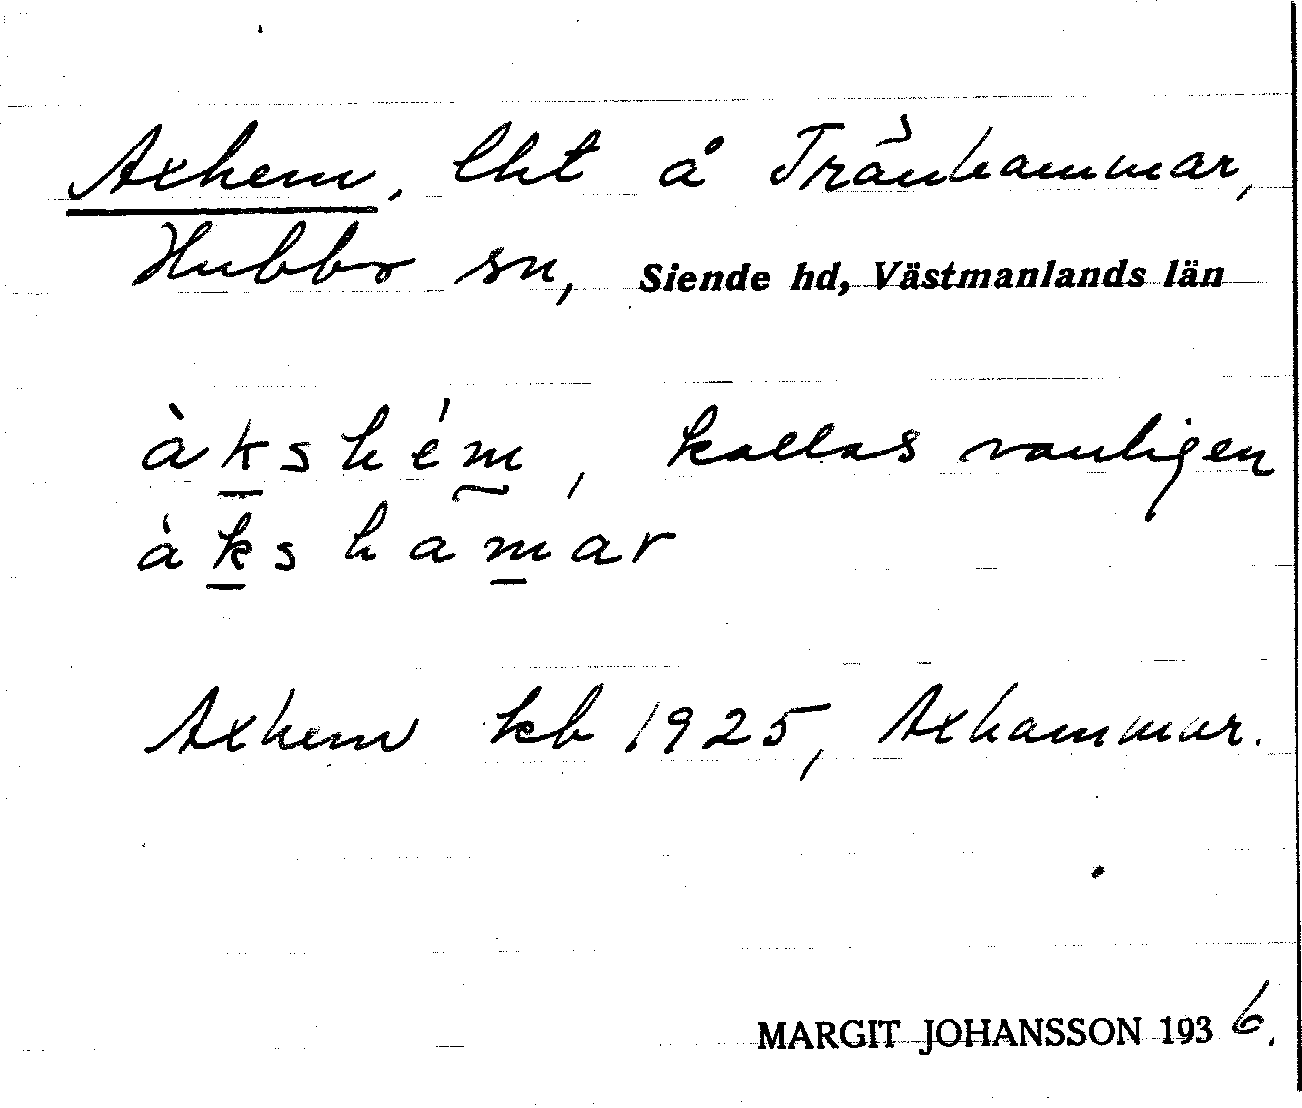 Axhem, lht å Tränhammar,
Hubbo sn, Siende hd, Västmanlands län
àkshém, kallas vanligen
àkshamar
Axhem kb 1925, Axhammar.
MARGIT JOHANSSON 1936.